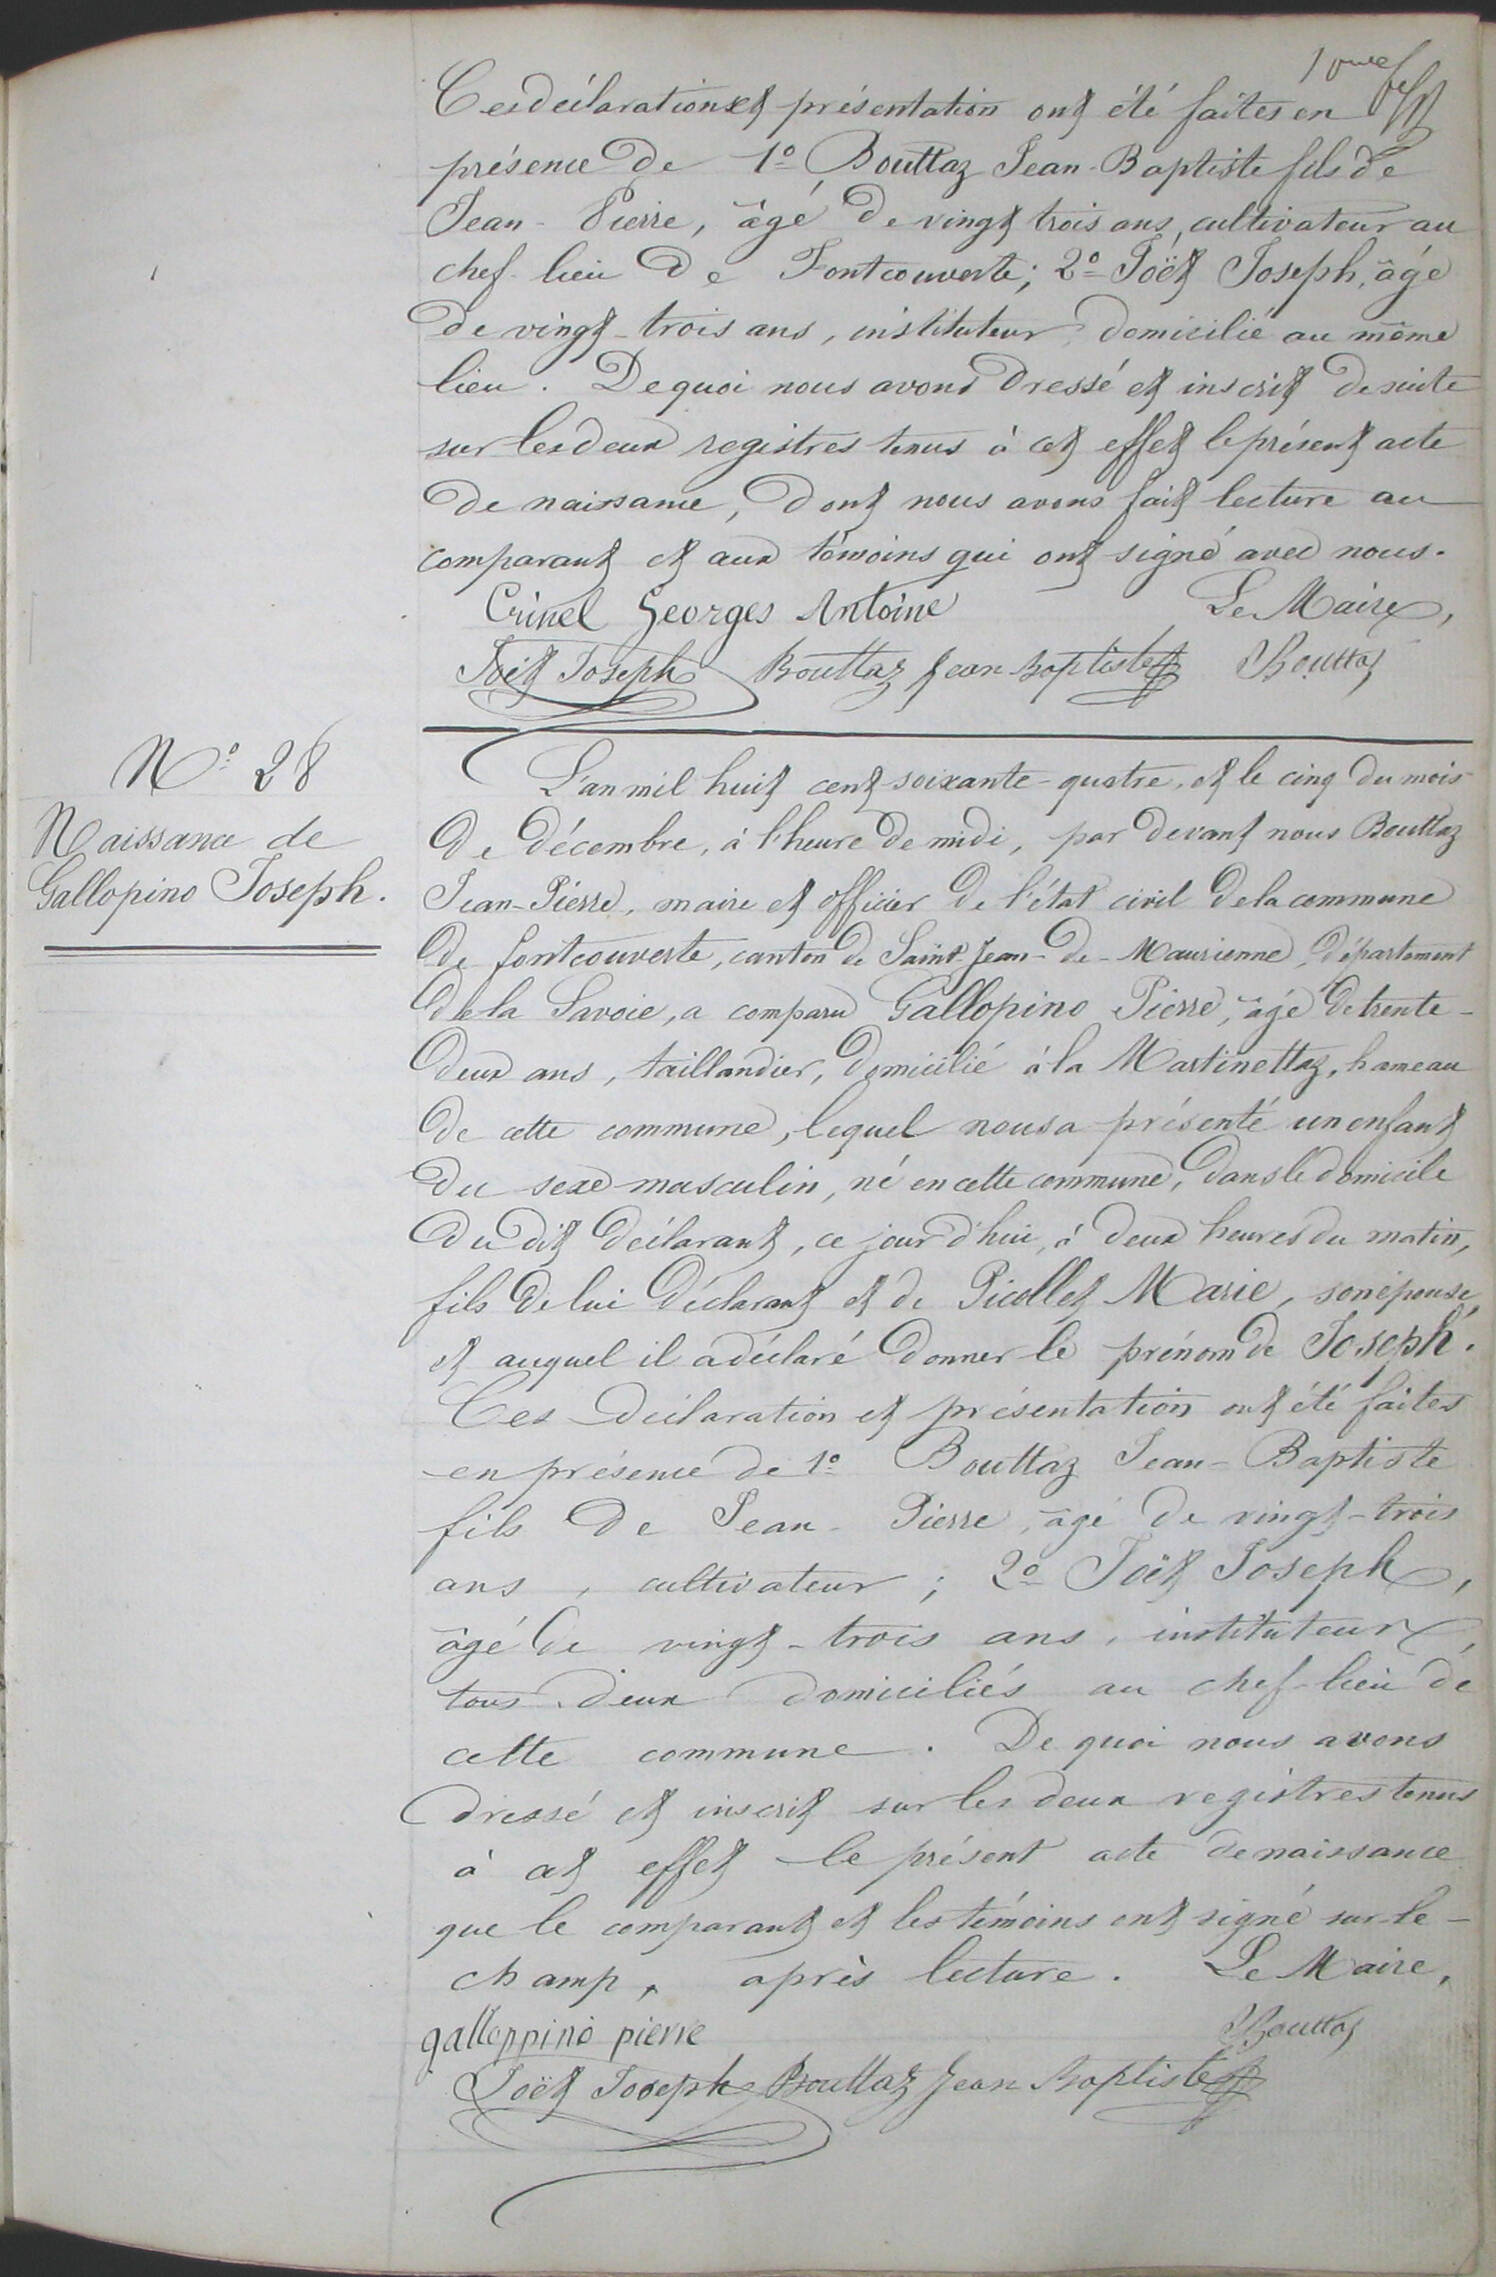 Ces déclaration et présentation ont été faites en
présence de 1º Bouttaz Jean-Baptiste fils de
Jean-Pierre, âgé de vingt trois ans, cultivateur au
chef-lieu de Fontcouverte; 2º Joët Joseph, âgé
de vingt-trois ans, instituteur, domicilié au même
lieu. De quoi nous avons dressé et inscrit de suite
sur les deux registres tenus à cet effet le présent acte
de naissance, dont nous avons fait lecture au
comparant et aux témoins qui ont signé avec nous.
Crinel Georges Antoine Le Maire,
Joët Joseph Bouttaz Jean-Baptiste Bouttaz
Nº 28
Naissance de
Gallopino Joseph.
L'an mil huit cent soixante-quatre, et le cinq du mois
de décembre, à l'heure de midi, par devant nous Bouttaz
Jean-Pierre, maire et officier de l'état civil de la commune
de fontcouverte, canton de Saint-Jean-de-Maurienne, département
de la Savoie, a comparu Gallopino Pierre, âgé de trente-
deux ans, taillandier, domicilié à la Martinettaz, hameau
de cette commune, lequel nous a présenté un enfant
du sexe masculin, né en cette commune, dans le domicile
du dit déclarant, ce jour d'hui, à deux heures du matin,
fils de lui déclarant et de Picollet Marie, son épouse,
et auquel il a déclaré donner le prénom de Joseph.
Ces déclaration et présentation ont été faites
en présence de 1º Bouttaz Jean-Baptiste
fils de Jean-Pierre, âgé de vingt-trois
ans, cultivateur; 2º Joët Joseph,
âgé de vingt-trois ans, instituteur,
tous deux domiciliés au chef-lieu de
cette commune. De quoi nous avons
dressé et inscrit sur les deux registres tenus
à cet effet le présent acte de naissance
que le comparant et les témoins ont signé sur-le-
champ, après lecture. Le Maire,
galloppino pierre Bouttaz
Joët Joseph Bouttaz Jean Baptiste